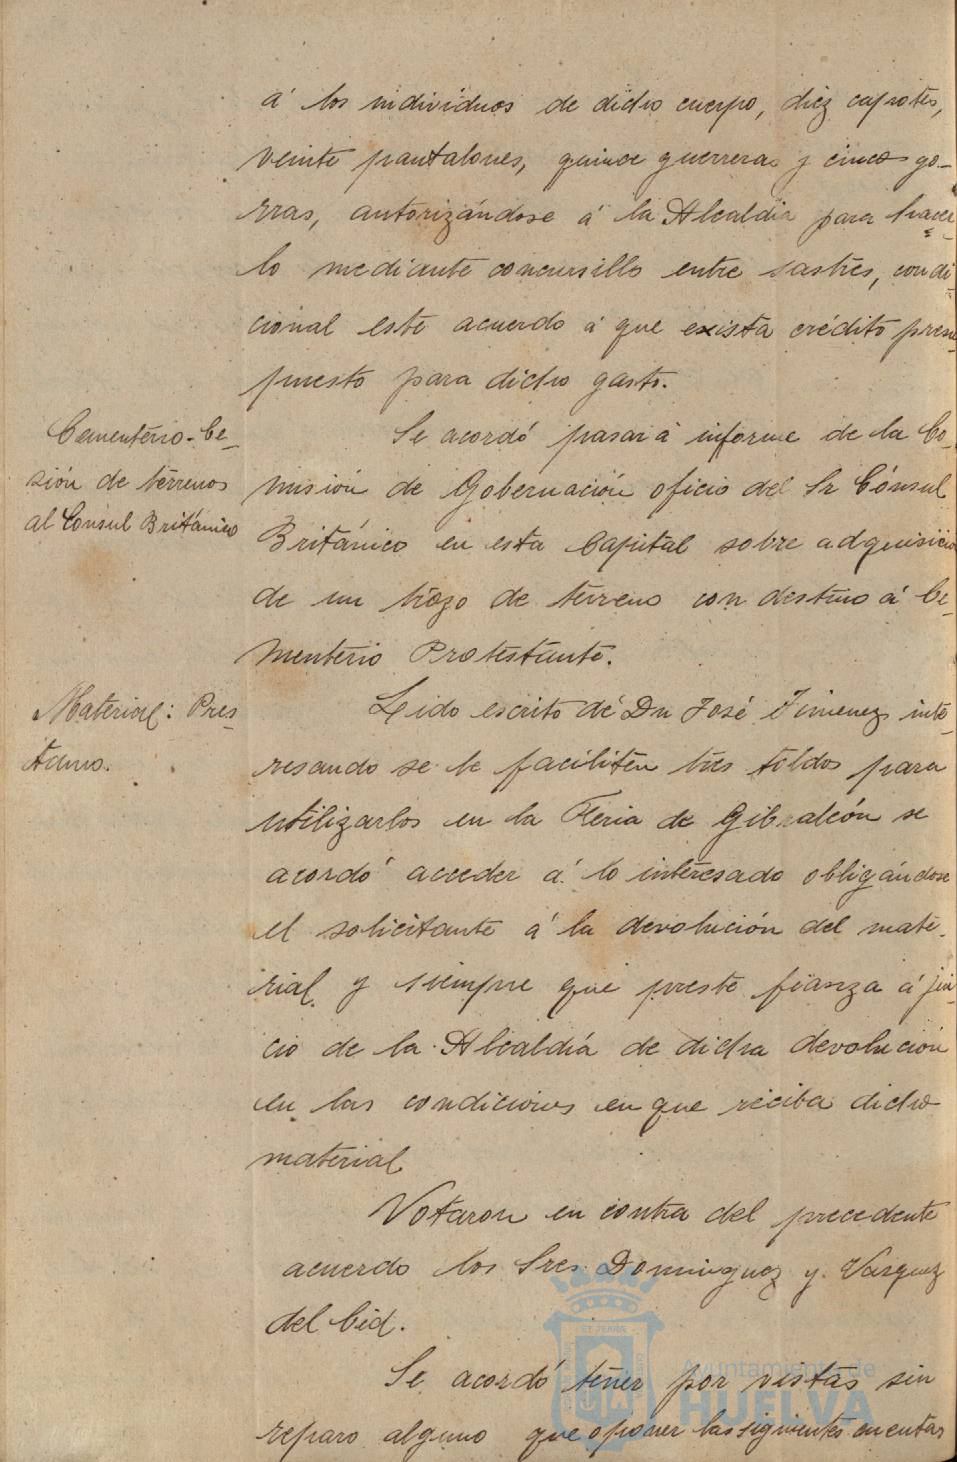 á los individuos de dicho cuerpo, diez capotes,
veinte pantalones, quince guerreras y cinco go-
rras, autorizándose á la Alcaldia para hacer-
lo mediante concursillo entre sastres, condi-
cional este acuerdo á que exista crédito presu-
puesto para dicho gasto.
Cementerio-Ce-
sión de terrenos
al Consul Británico
Se acordó pasar á informe de la Co-
misión de Gobernación oficio del Sr Cónsul
Británico en esta Capital sobre adquisición
de un trozo de terreno con destino á Ce-
menterio Protestante.
Material: Pres-
tamo.
Leido escrito de Dn José Jimenez inte-
resando se le faciliten tres toldos para
utilizarlos en la Feria de Gibraleón se
acordó acceder á lo interesado obligándose
el solicitante á la devolución del mate-
rial y siempre que preste fianza á jui-
cio de la Alcaldía de dicha devolución
en las condiciones en que reciba dicho
material
Votaron en contra del precedente
acuerdo los Sres. Dominguez y Vazquez
del Cid.
Se acordó tener por vistas sin
reparo alguno que oponer las siguientes cuentas
Ayuntamiento de
HUELVA